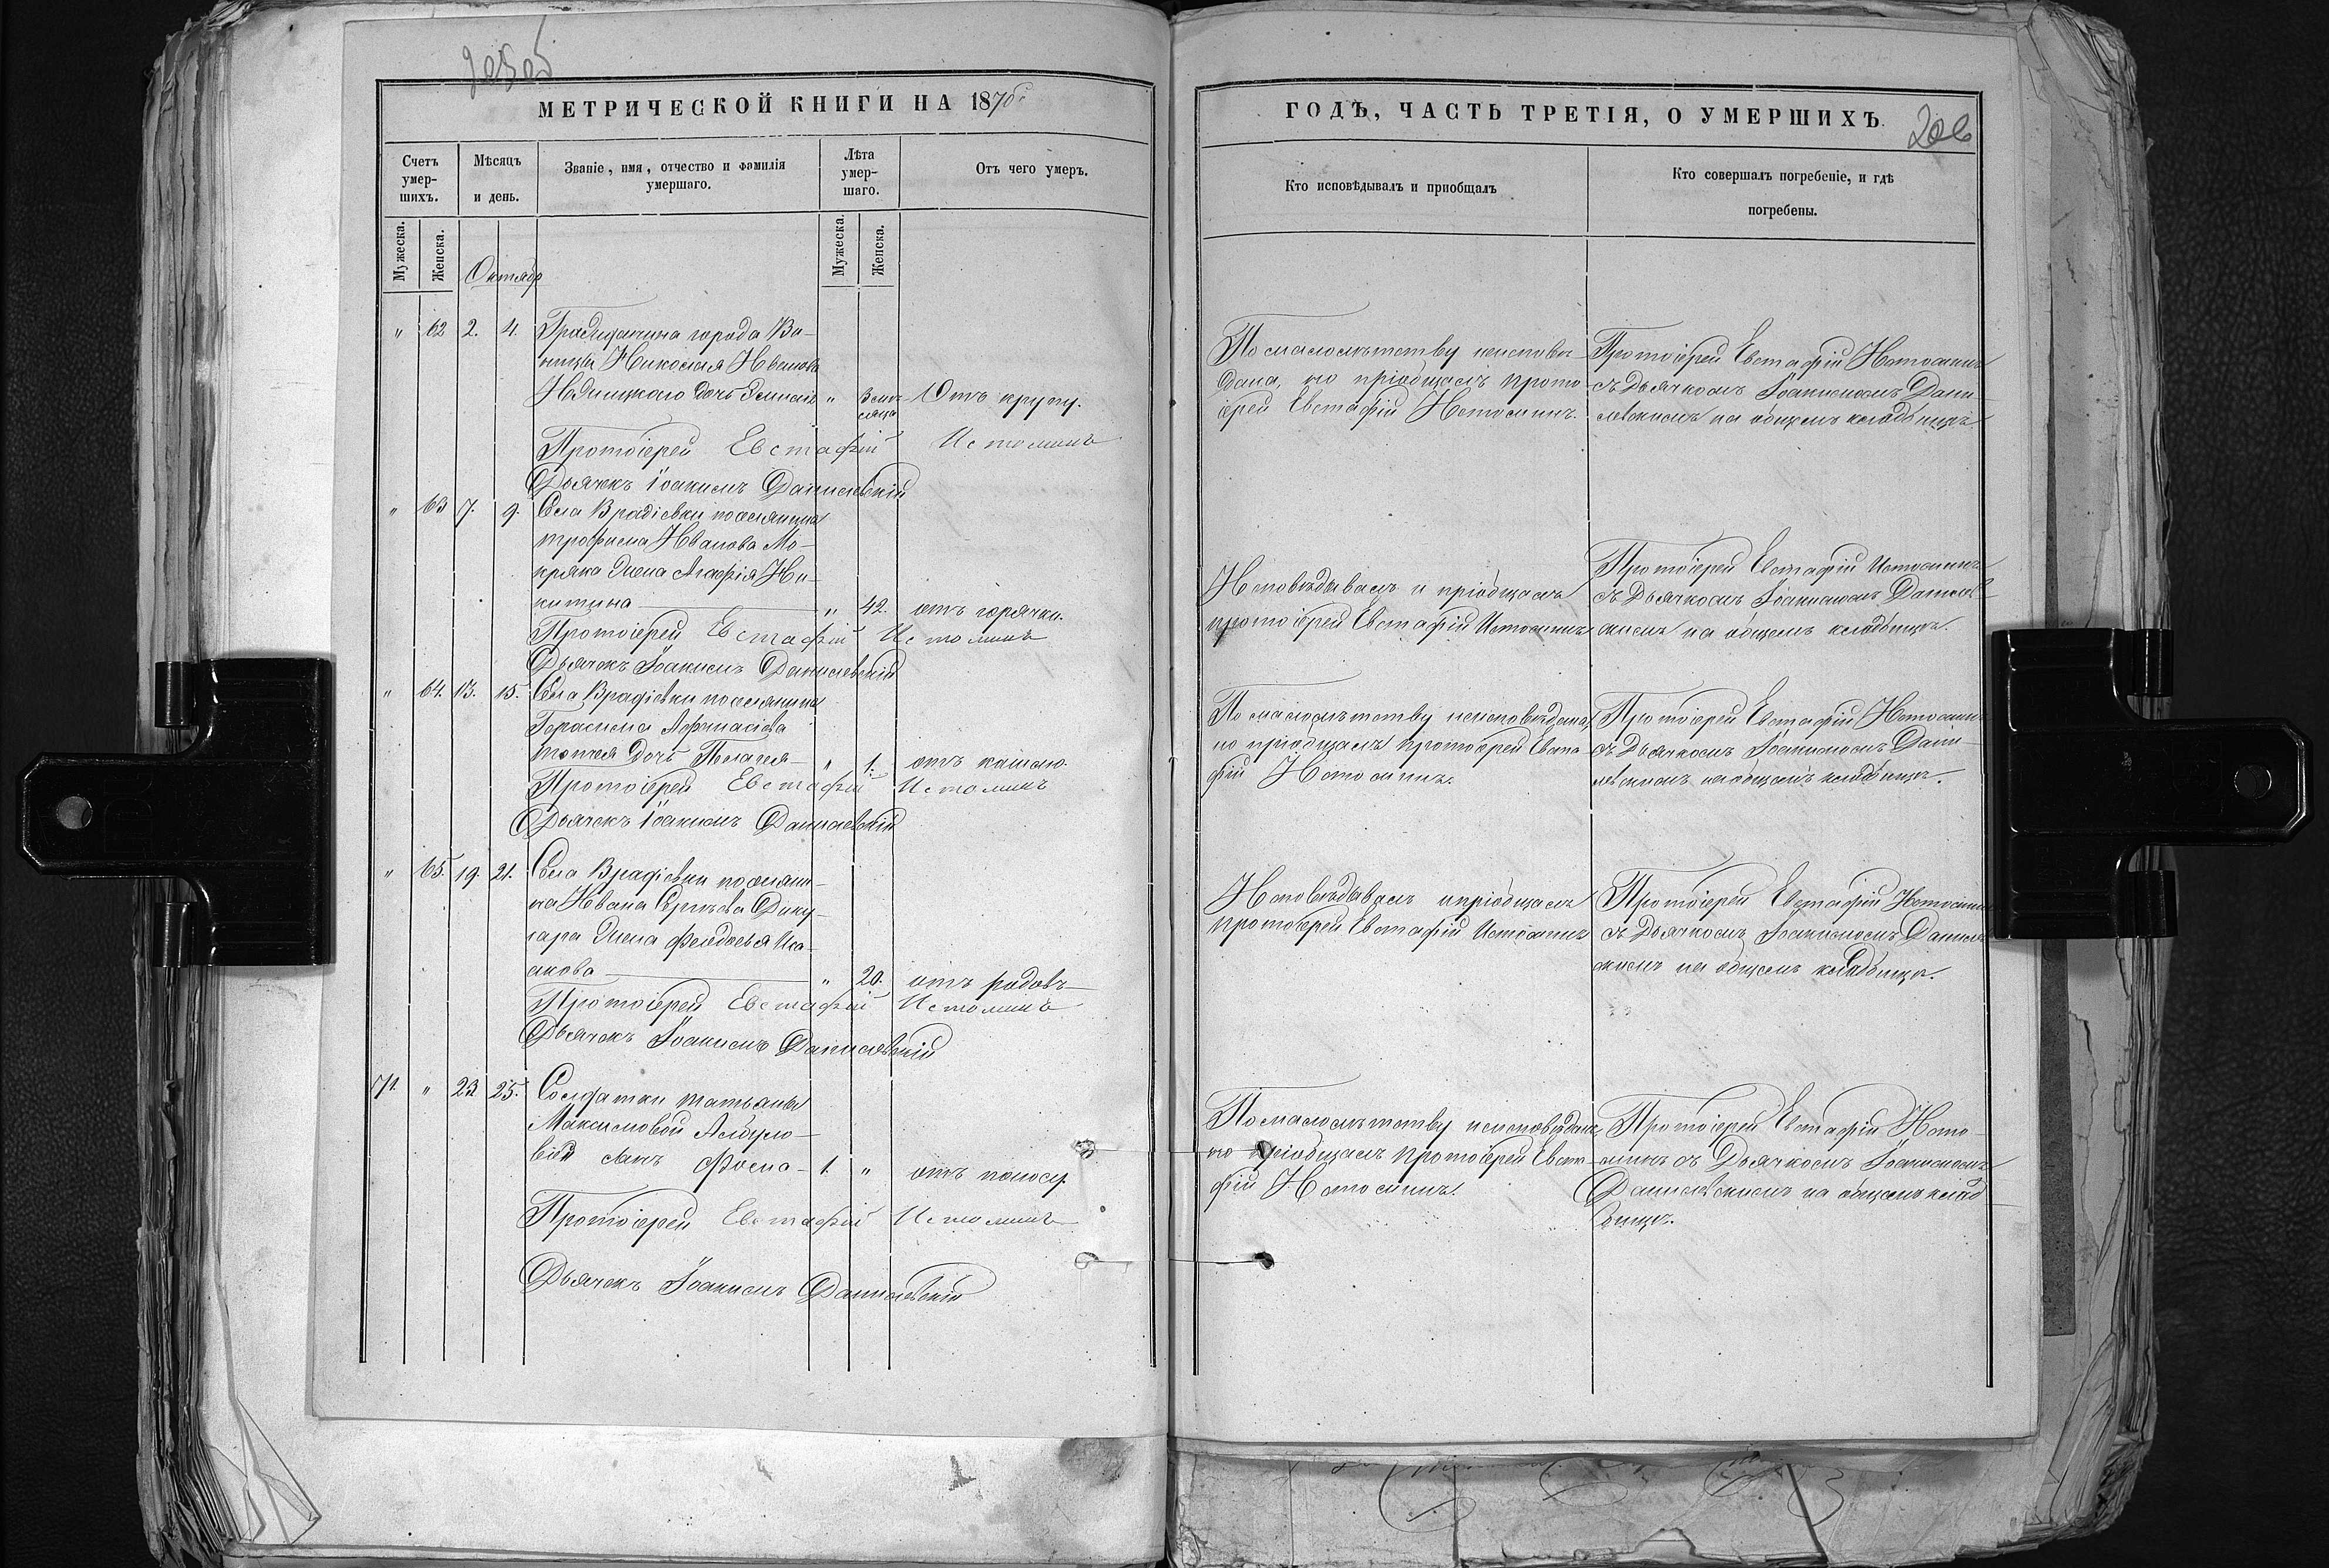 МЕТРИЧЕСКОЙ КНИГИ НА 1870
Счетъ умер-шихъ.
Мѣсяцъ и день.
Званіе, имя, отчество и фамилія умершаго.
Лѣта умер-шаго.
Отъ чего умеръ.
Мужеска.
Женска.
Мужеска.
Женска.
Октябр
" 62 2. 4. Гражданина города
Николая Иванова
дочь " 3 мѣ-
сяца Отъ крупу.
Протоіерей Евстафій Истоминъ
Дьячекъ Іоакимъ Данилевскій
" 63 7. 9. Села Врадіевки поселянина
трофима Иванова Мо-
кряка жена Агафія Ни-
китина " 42. отъ горячки.
Протоіерей Евстафій Истоминъ
Дьячекъ Іоакимъ Данилевскій
" 64. 13. 15. Села Врадіевки поселянина
Герасима
дочь Пелагея " 1. отъ кашлю.
Протоіерей Евстафій Истоминъ
Дьячекъ Іоакимъ Данилевскій
" 65. 19. 21. Села Врадіевки поселяни-
на Ивана Сергѣева
жена Феодосья Иса-
акова " 20. отъ родовъ
Протоіерей Евстафій Истоминъ
Дьячекъ Іоакимъ Данилевскій
71. " 23 25. Солдатки татьяны
Максимовой
сынъ Фома 1. " отъ поносу
Протоіерей Евстафій Истоминъ
Дьячекъ Іоакимъ Данилевскій
ГОДЪ, ЧАСТЬ ТРЕТІЯ, О УМЕРШИХЪ.
206
Кто исповѣдывалъ и пріобщалъ
Кто совершалъ погребеніе, и гдѣ
погребены.
По малолѣтству неисповѣ-
дана, но пріобщалъ прото-
іерей Евстафій Истоминъ.
Протоіерей Евстафій Истоминъ
съ Дьячкомъ Іоакимомъ Дани-
левскимъ на общемъ кладбищѣ
Исповѣдывалъ и пріобщалъ
протоіерей Евстафій Истоминъ
Протоіерей Евстафій Истоминъ
съ Дьячкомъ Іоакимомъ Данилев-
скимъ на общемъ кладбищѣ.
По малолѣтству неисповѣдана,
но пріобщалъ протоіерей Евста-
фій Истоминъ.
Протоіерей Евстафій Истоминъ
съ Дьячкомъ Іоакимомъ Дани-
левскимъ на общемъ кладбищѣ.
Исповѣдывалъ и пріобщалъ
протоіерей Евстафій Истоминъ
Протоіерей Евстафій Истоминъ
съ Дьячкомъ Іоакимомъ Данилев-
скимъ на общемъ кладбищѣ.
По малолѣтству неисповѣданъ,
но пріобщалъ протоіерей Евста-
фій Истоминъ.
Протоіерей Евстафій Исто-
минъ съ Дьячкомъ Іоакимомъ
Данилевскимъ на общемъ клад-
бищѣ.